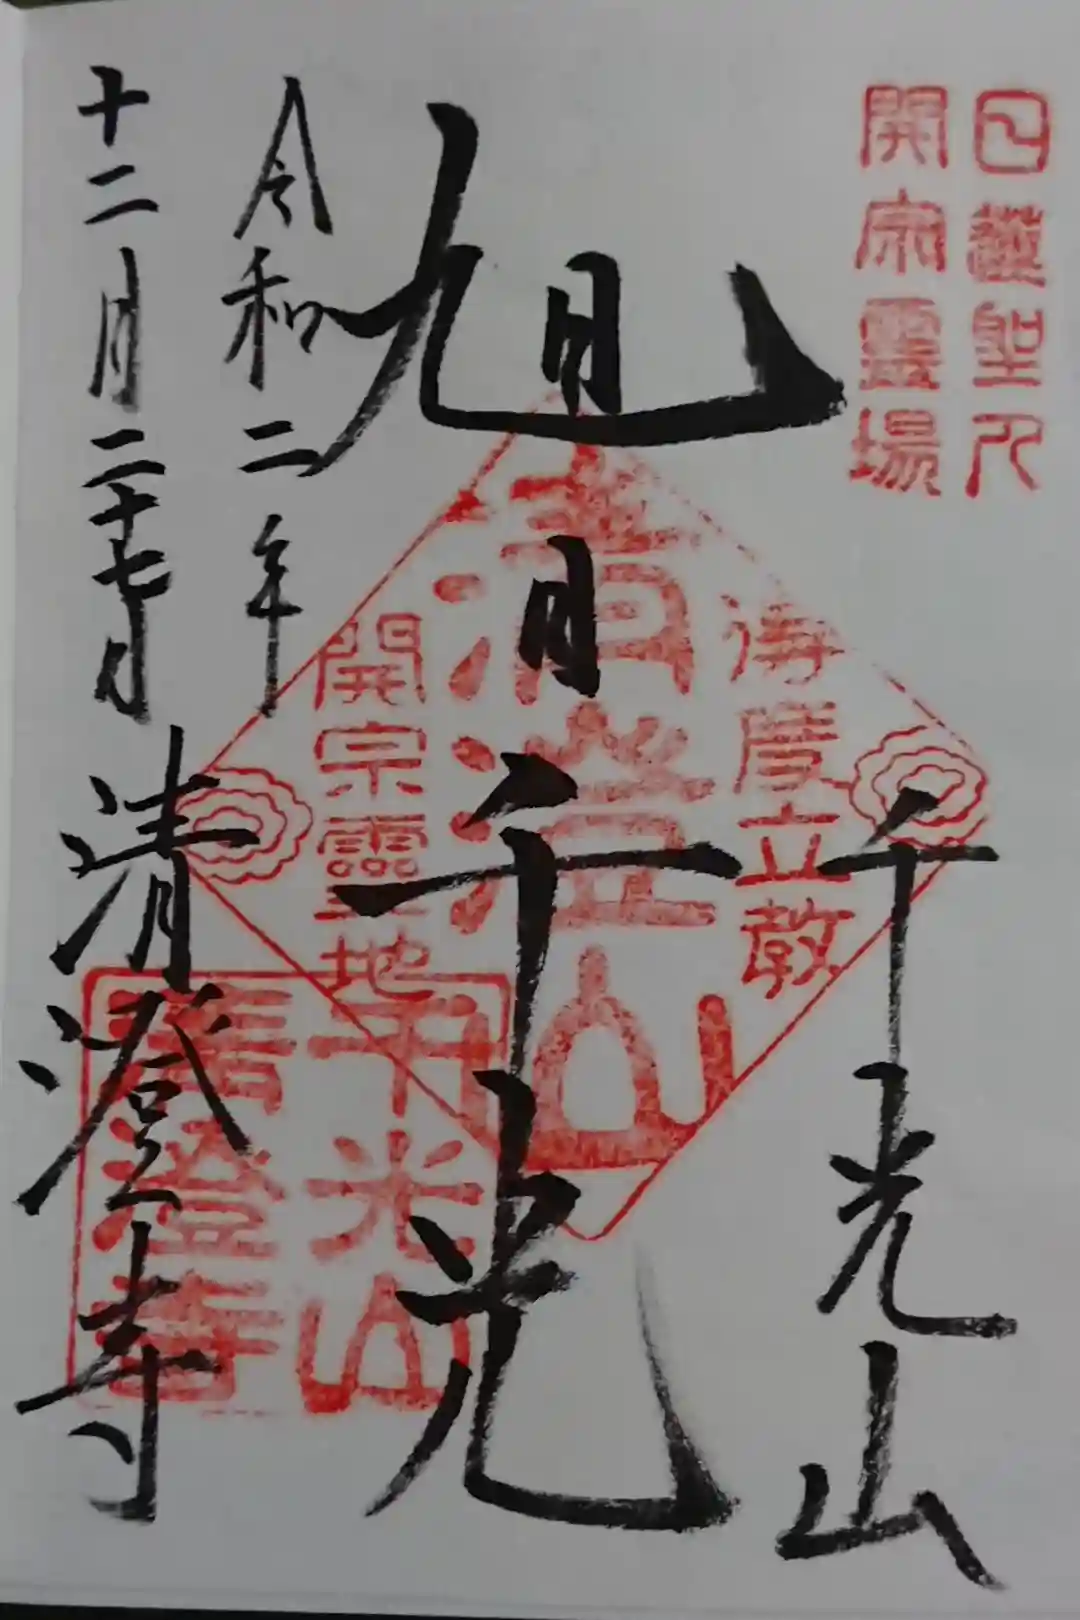 日蓮聖人
開宗霊場
千光山
旭日千光
令和二年
十二月二十七日
清澄寺
清澄山
開宗霊地
立教
千光山
清澄寺